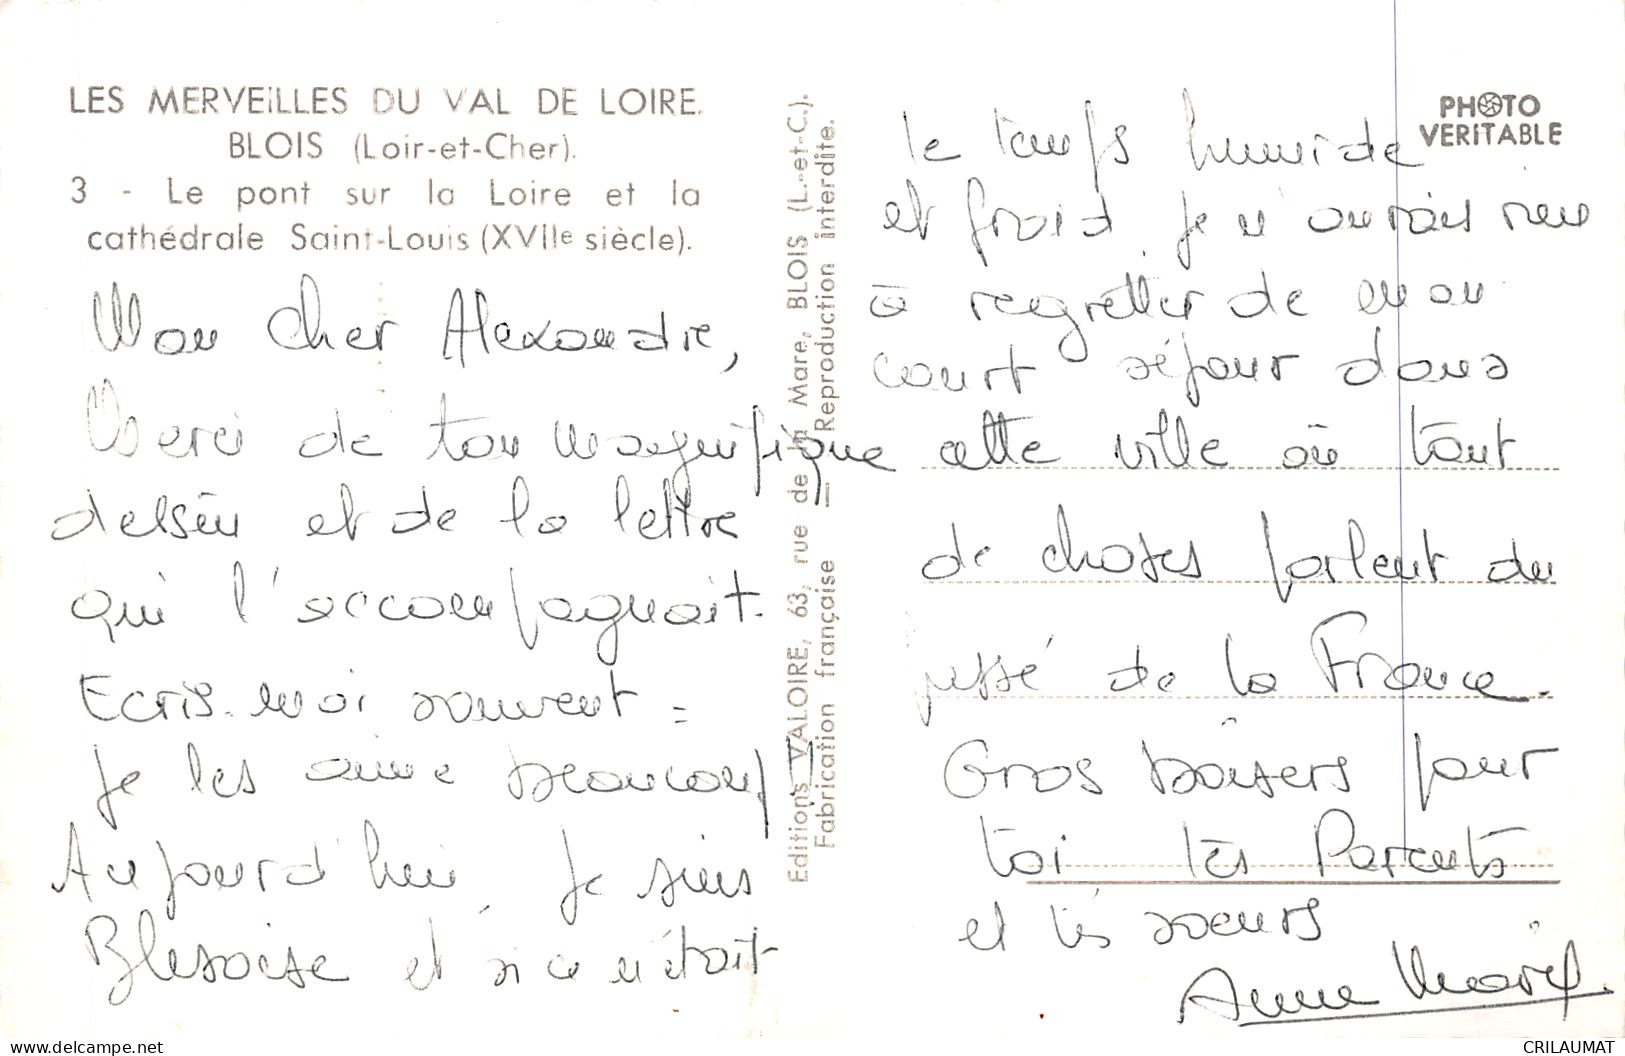 LES MERVEILLES DU VAL DE LOIRE.
BLOIS (Loir-et-Cher).
3 - Le pont sur la Loire et la
cathédrale Saint-Louis (XVIIe siècle).
Mon cher Alexandre,
Merci de ton magnifique
dessin et de la lettre
qui l'accompagnait.
Ecris-moi souvent =
Je les aime beaucoup
Aujourd'hui, je suis
Blésoise et si ce n'était
Editions VALOIRE, 63, rue de la Mare, BLOIS (L.-et-C.).
Fabrication française — Reproduction interdite.
PHOTO
VERITABLE
le temps humide
et froid, je n'aurais rien
à regretter de mon
court séjour dans
cette ville où tant
de choses parlent du
passé de la France.
Gros baisers pour
toi tes Parents
et tes soeurs
Anne Marie.
delcampe.net
CRILAUMAT